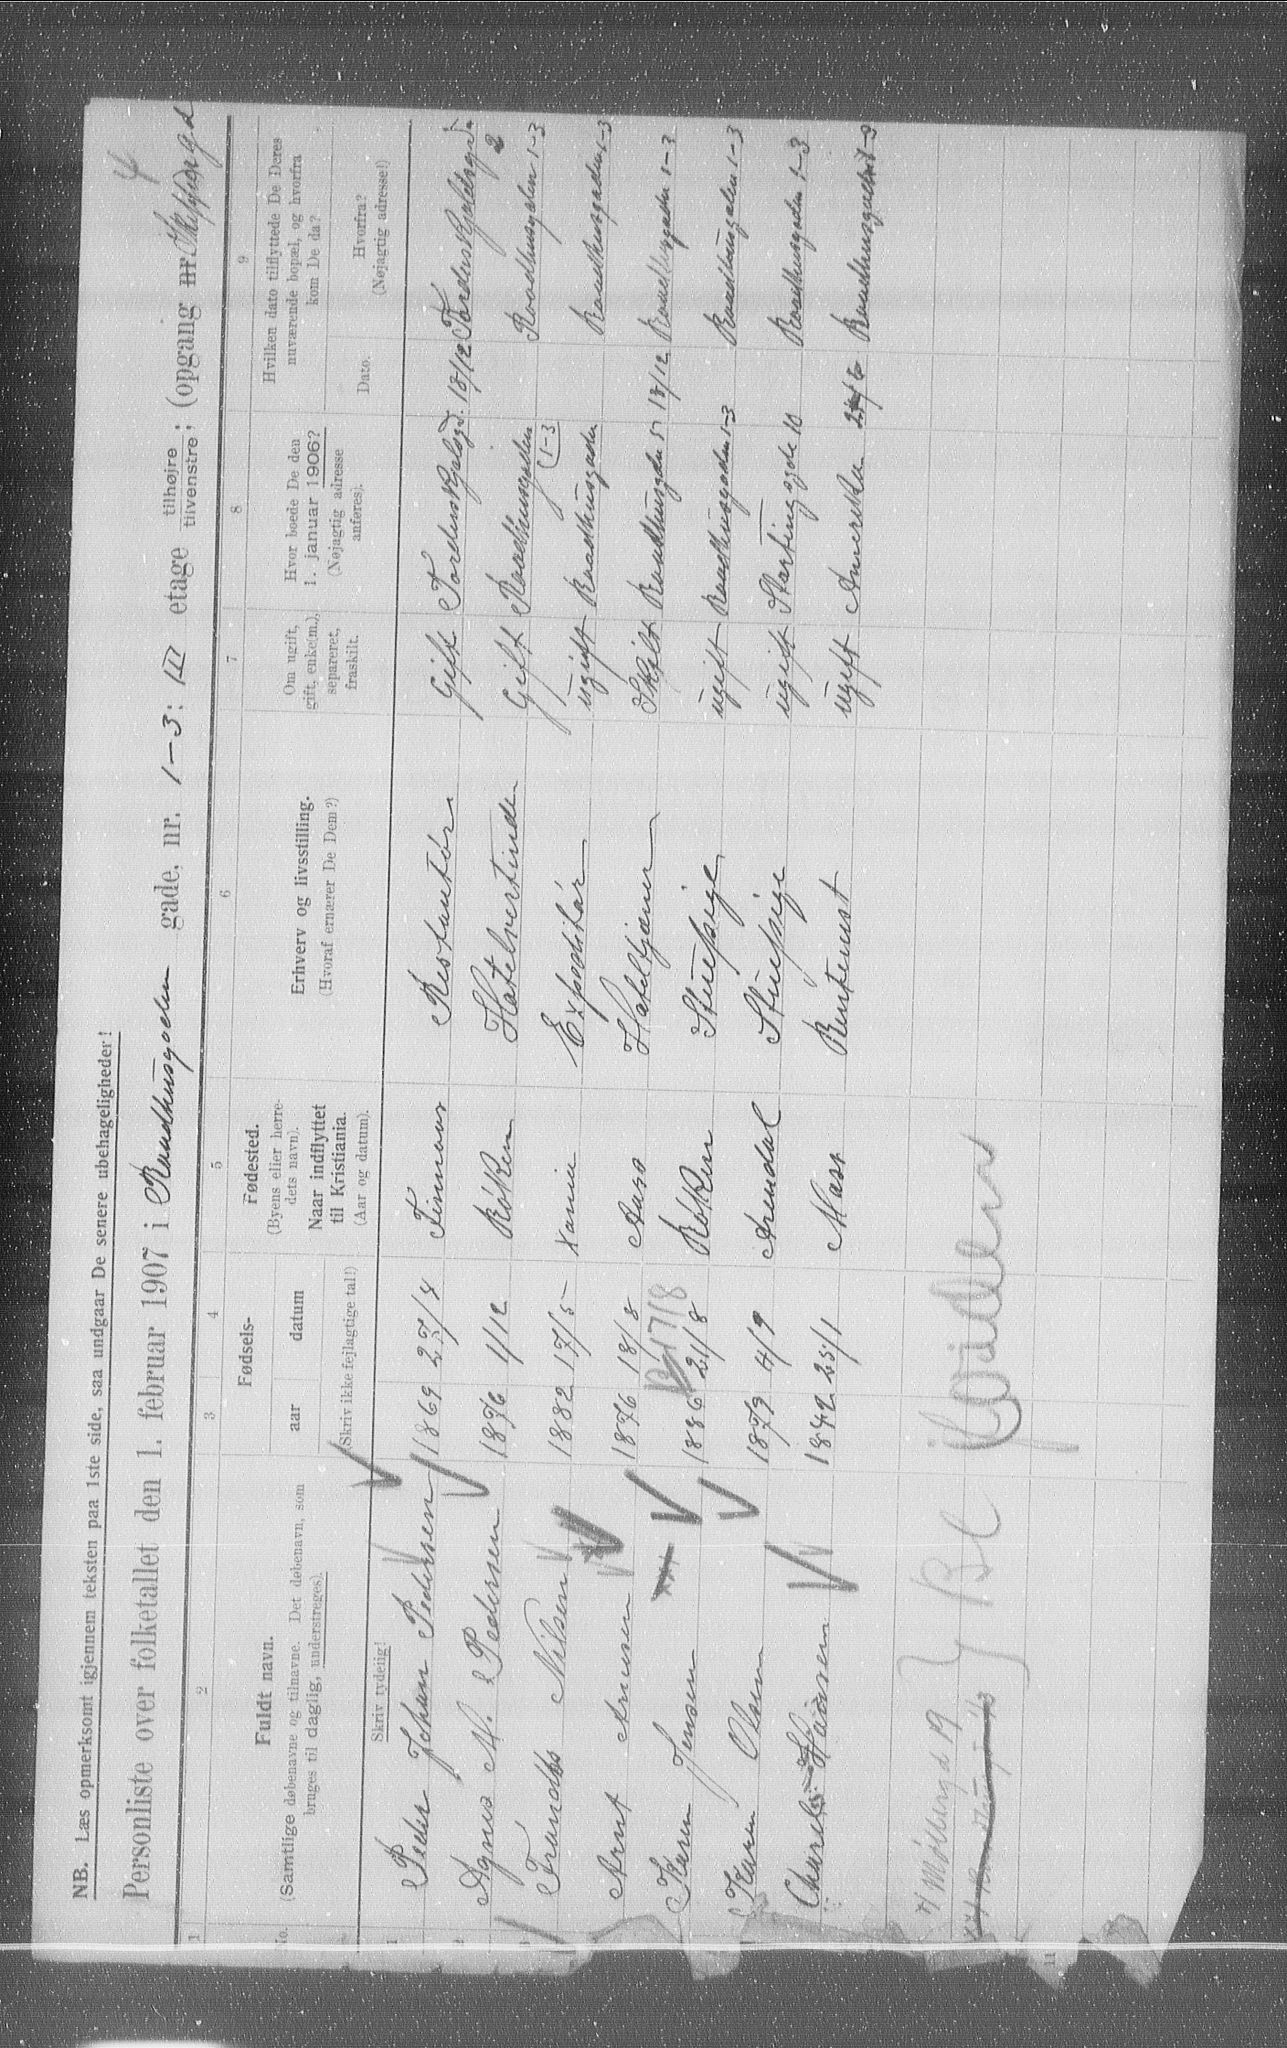 NB. Læs opmerksomt igjennem teksten paa 1ste side, saa undgaar De senere ubehageligheder!
4
Personliste over folketallet den 1. februar 1907 i Raadhusgaden gade, nr. 1-3: III etage tilhøjre tilvenstre; (opgang nr.
1 2 3 4 5 6 7 8 9
No.
Fuldt navn.
(Samtlige døbenavne og tilnavne. Det døbenavn, som
bruges til daglig, understreges).
Skriv tydelig!
Fødsels-
aar datum
(Skriv ikke fejlagtige tal!)
Fødested.
(Byens eller herre-
dets navn).
Naar indflyttet
til Kristiania.
(Aar og datum).
Erhverv og livsstilling.
(Hvoraf ernærer De Dem?)
Om ugift,
gift, enke(m.),
separeret,
fraskilt.
Hvor boede De den
1. januar 1906?
(Nøjagtig adresse
anføres).
Hvilken dato tilflyttede De Deres
nuværende bopæl, og hvorfra
kom De da?
Dato.
Hvorfra?
(Nøjagtig adresse!)
1 Peder Johan Pedersen 1869 Restauratør Gift Tordenskjoldsgd. 18/12 Tordenskjoldsgd. 2
2 Agnes M. Pedersen 1876 1/12 Røken Hotelvertinde Gift Raadhusgaden 1-3 Raadhusgaden 1-3
3 Nilsen 1882 17/5 Expeditør ugift Raadhusgaden Raadhusgaden 1-3
Arnt Arnesen 1876 18/8 Hoteltjener Skilt Raadhusgaden 5 18/12 Raadhusgaden 1-3
B 17/8
Karen Jensen 1886 21/8 Røken Stuepige ugift Raadhusgaden 1-3 Raadhusgaden 1-3
Karen Olsen 1879 4/9 Arendal Stuepige ugift Stortingsgade 10 Raadhusgaden 1-3
Charles Hansen 25/1 Moss ugift Amerika Raadhusgaden 1-3
Møllergd 19
11